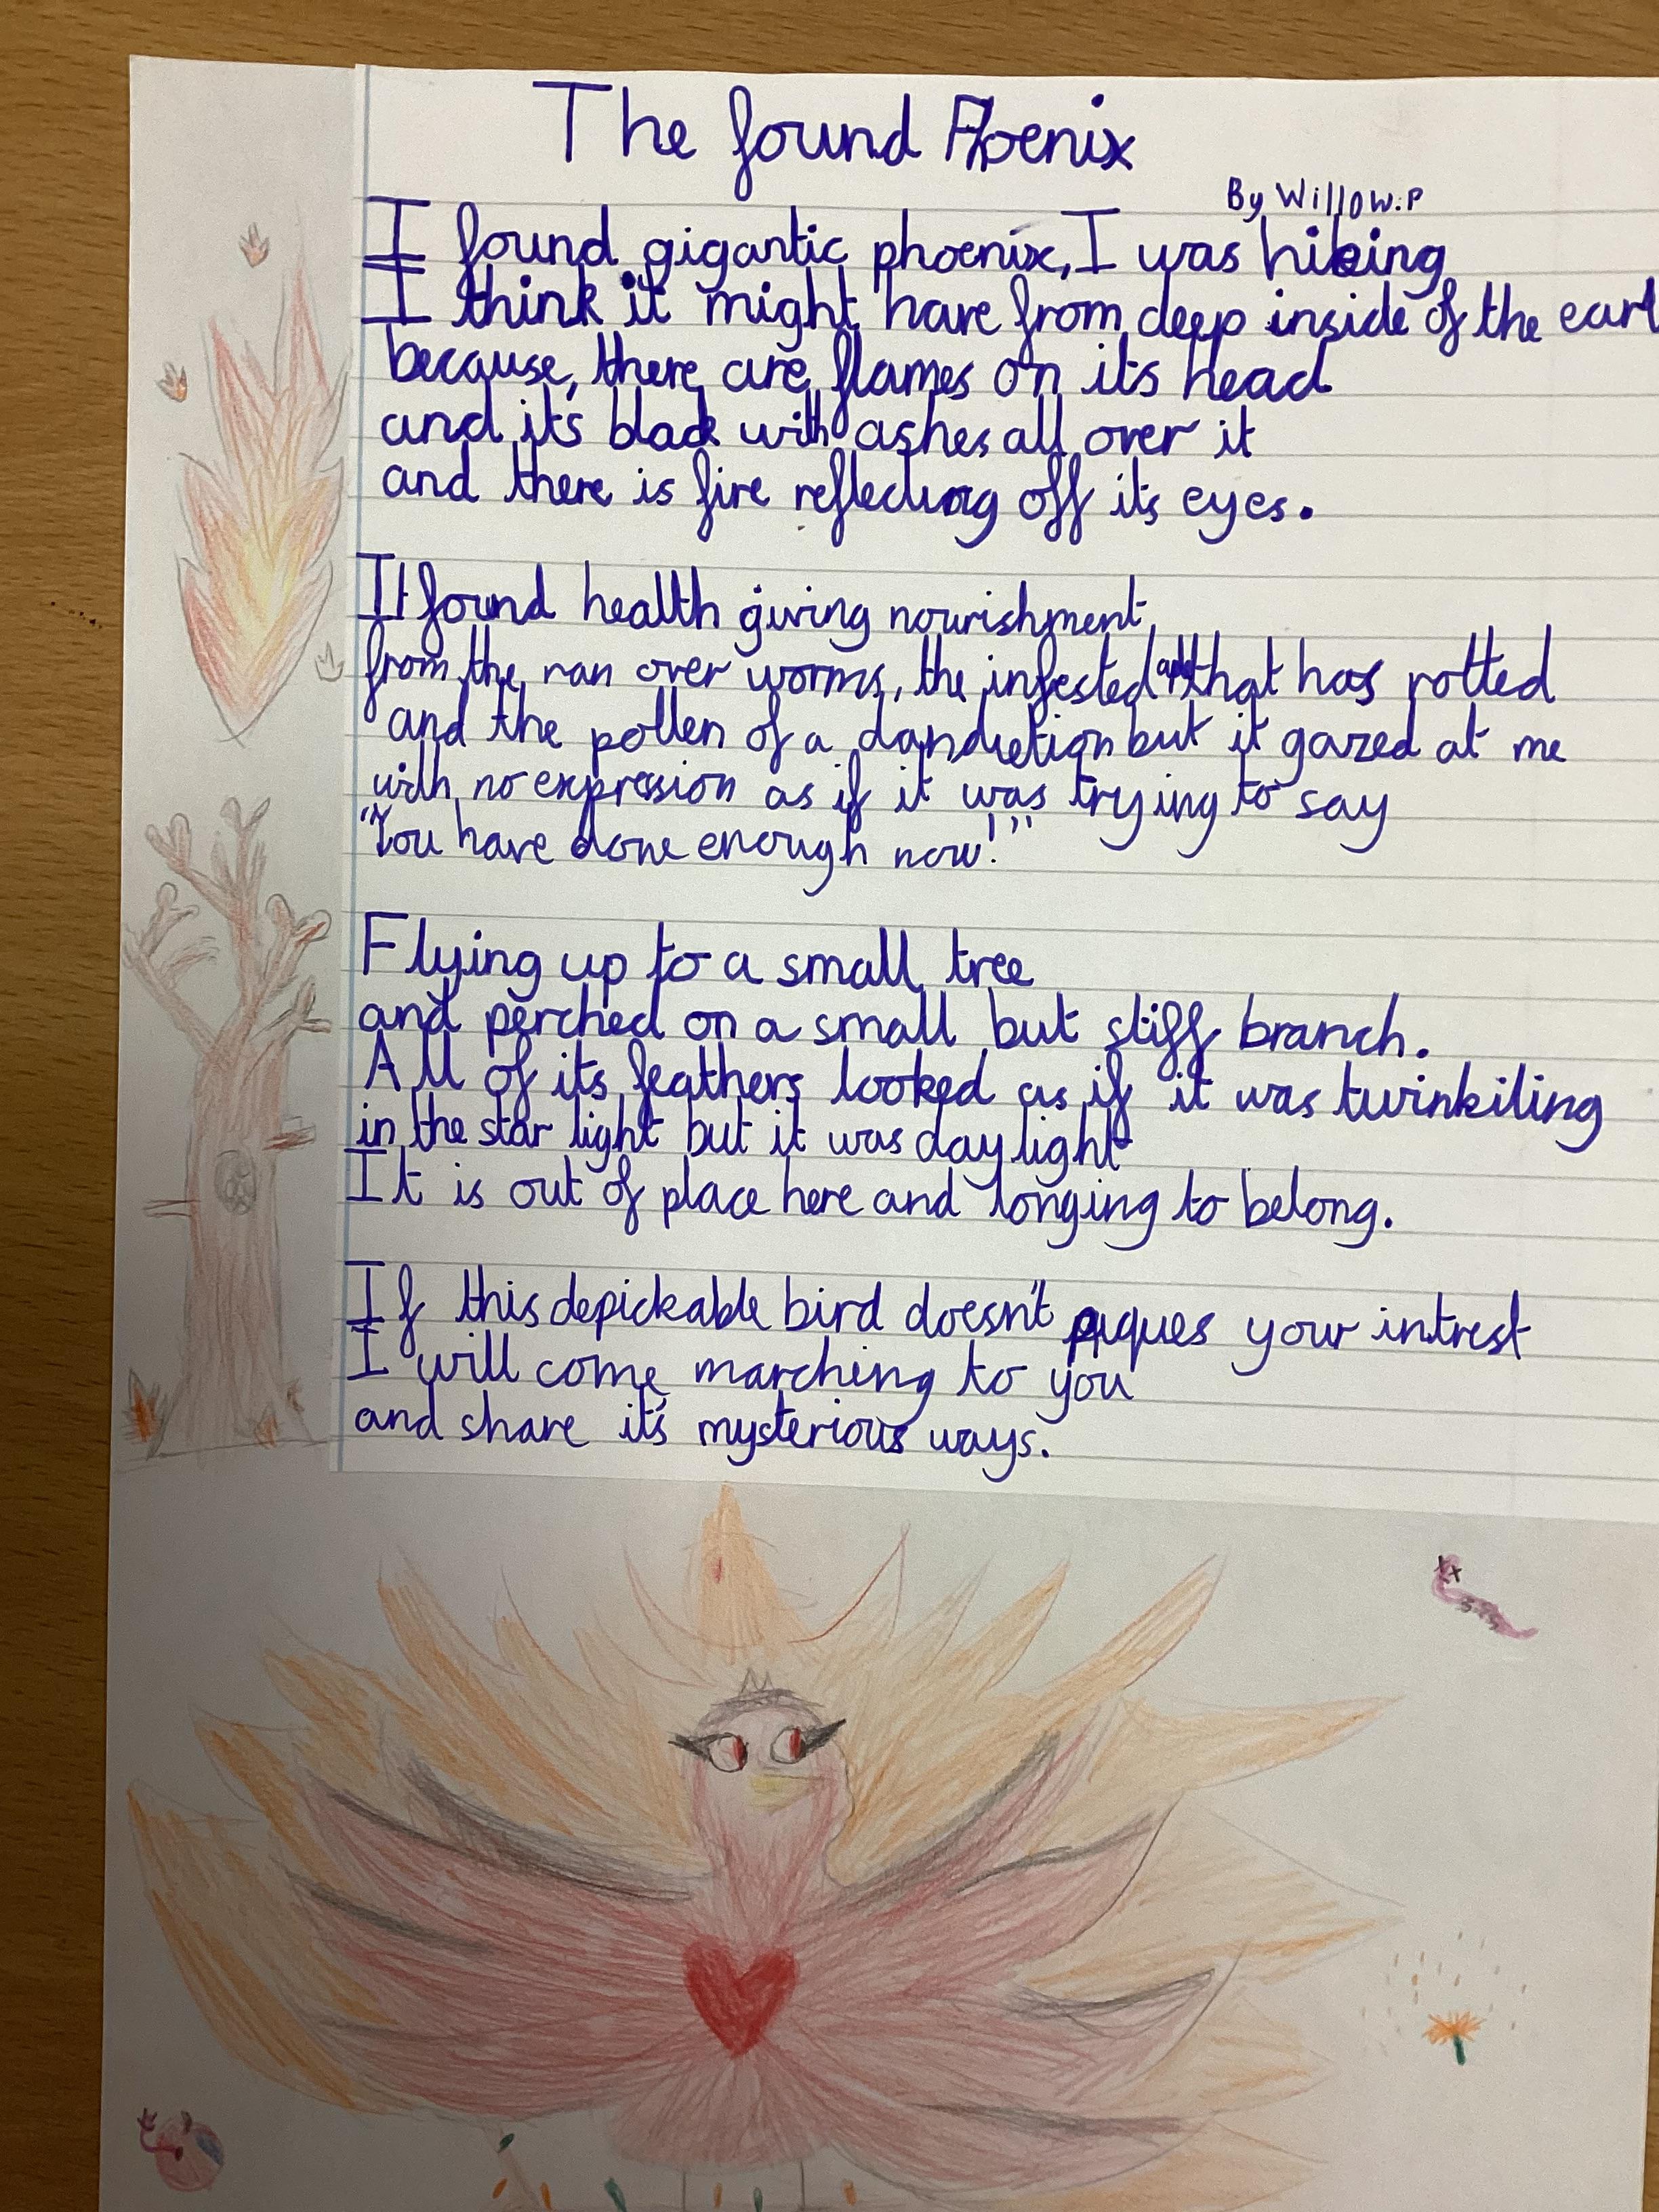 The found Phoenix
By Willow.P
I found gigantic phoenix, I was hiking
I think it might have from deep inside of the eart
because, there are flames on its head
and it's black with ashes all over it
and there is fire reflecting off its eyes.
It found health giving nourishment
from the ran over worms, the infested that has rotted
and the pollen of a but it gazed at me
with no expression as if it was trying to say
"You have done enough now!"
Flying up to a small tree
and perched on a small but stiff branch.
All of its feathers looked as if it was twinkiling
in the star light but it was day light
It is out of place here and longing to belong.
If this depickable bird doesn't piques your intrest
I will come marching to you
and share it's mysterious ways.